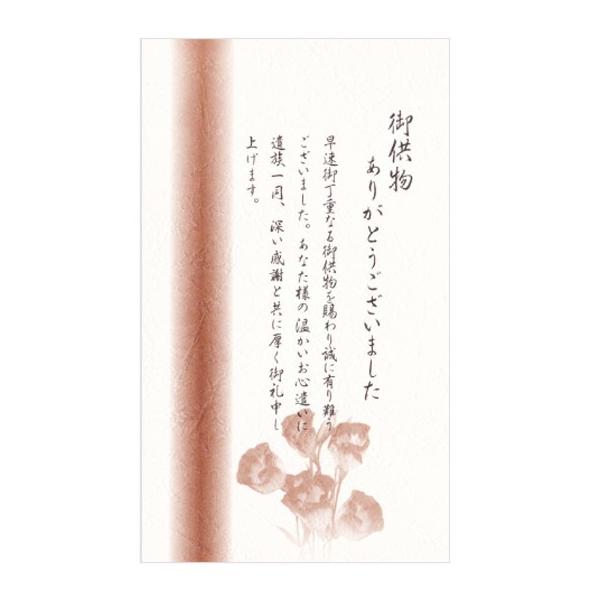 御供物
ありがとうございました
早速御丁重なる御供物を賜わり誠に有り難う
ございました。あなた様の温かいお心遣いに
遺族一同、深い感謝と共に厚く御礼申し
上げます。